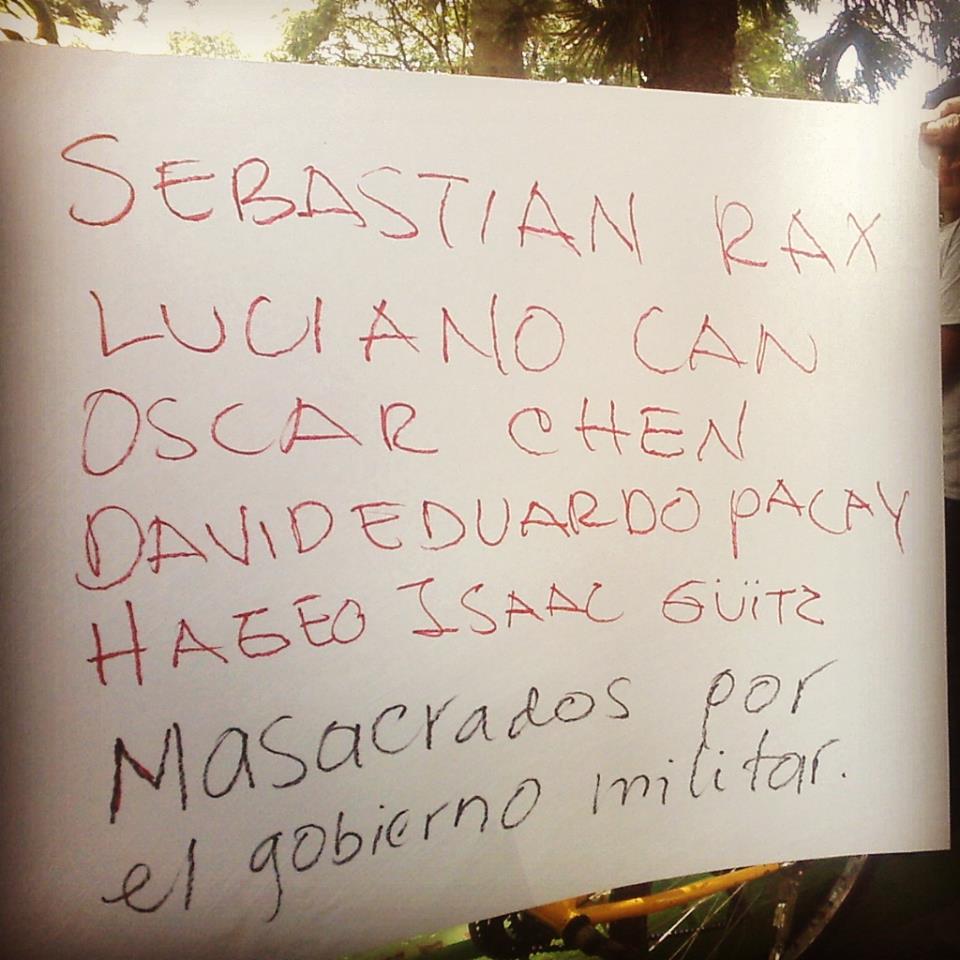 SEBASTIAN RAX
LUCIANO CAN
OSCAR CHEN
DAVID EDUARDO PACAY
HAGEO ISAAC GÜITZ
Masacrados por
el gobierno militar.